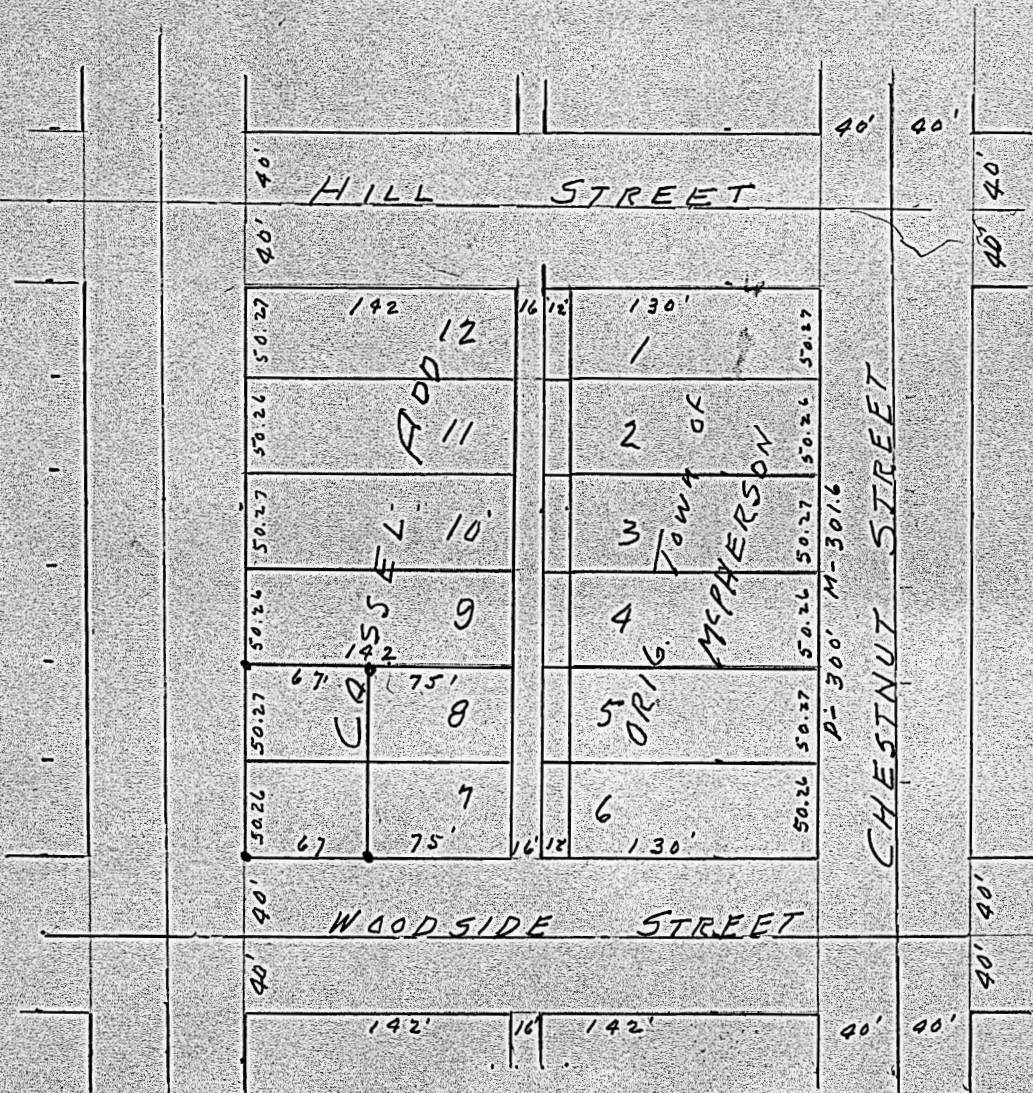 40' 40'
40'
40'
HILL STREET
40'
40'
142 16 12' 130'
50.27 12 1 50.27
50.26 11 2 50.26
50.27 10 3 50.27
50.26 9 4 50.26
142
67' 75'
50.27 8 5 50.27
50.26 7 6 50.26
67 75' 16' 12 130'
ADD
ORIG. TOWN OF
McPHERSON
P-300' M-301.6
CHESTNUT STREET
40'
40'
WOODSIDE STREET
40'
40'
142' 16' 142' 40' 40'